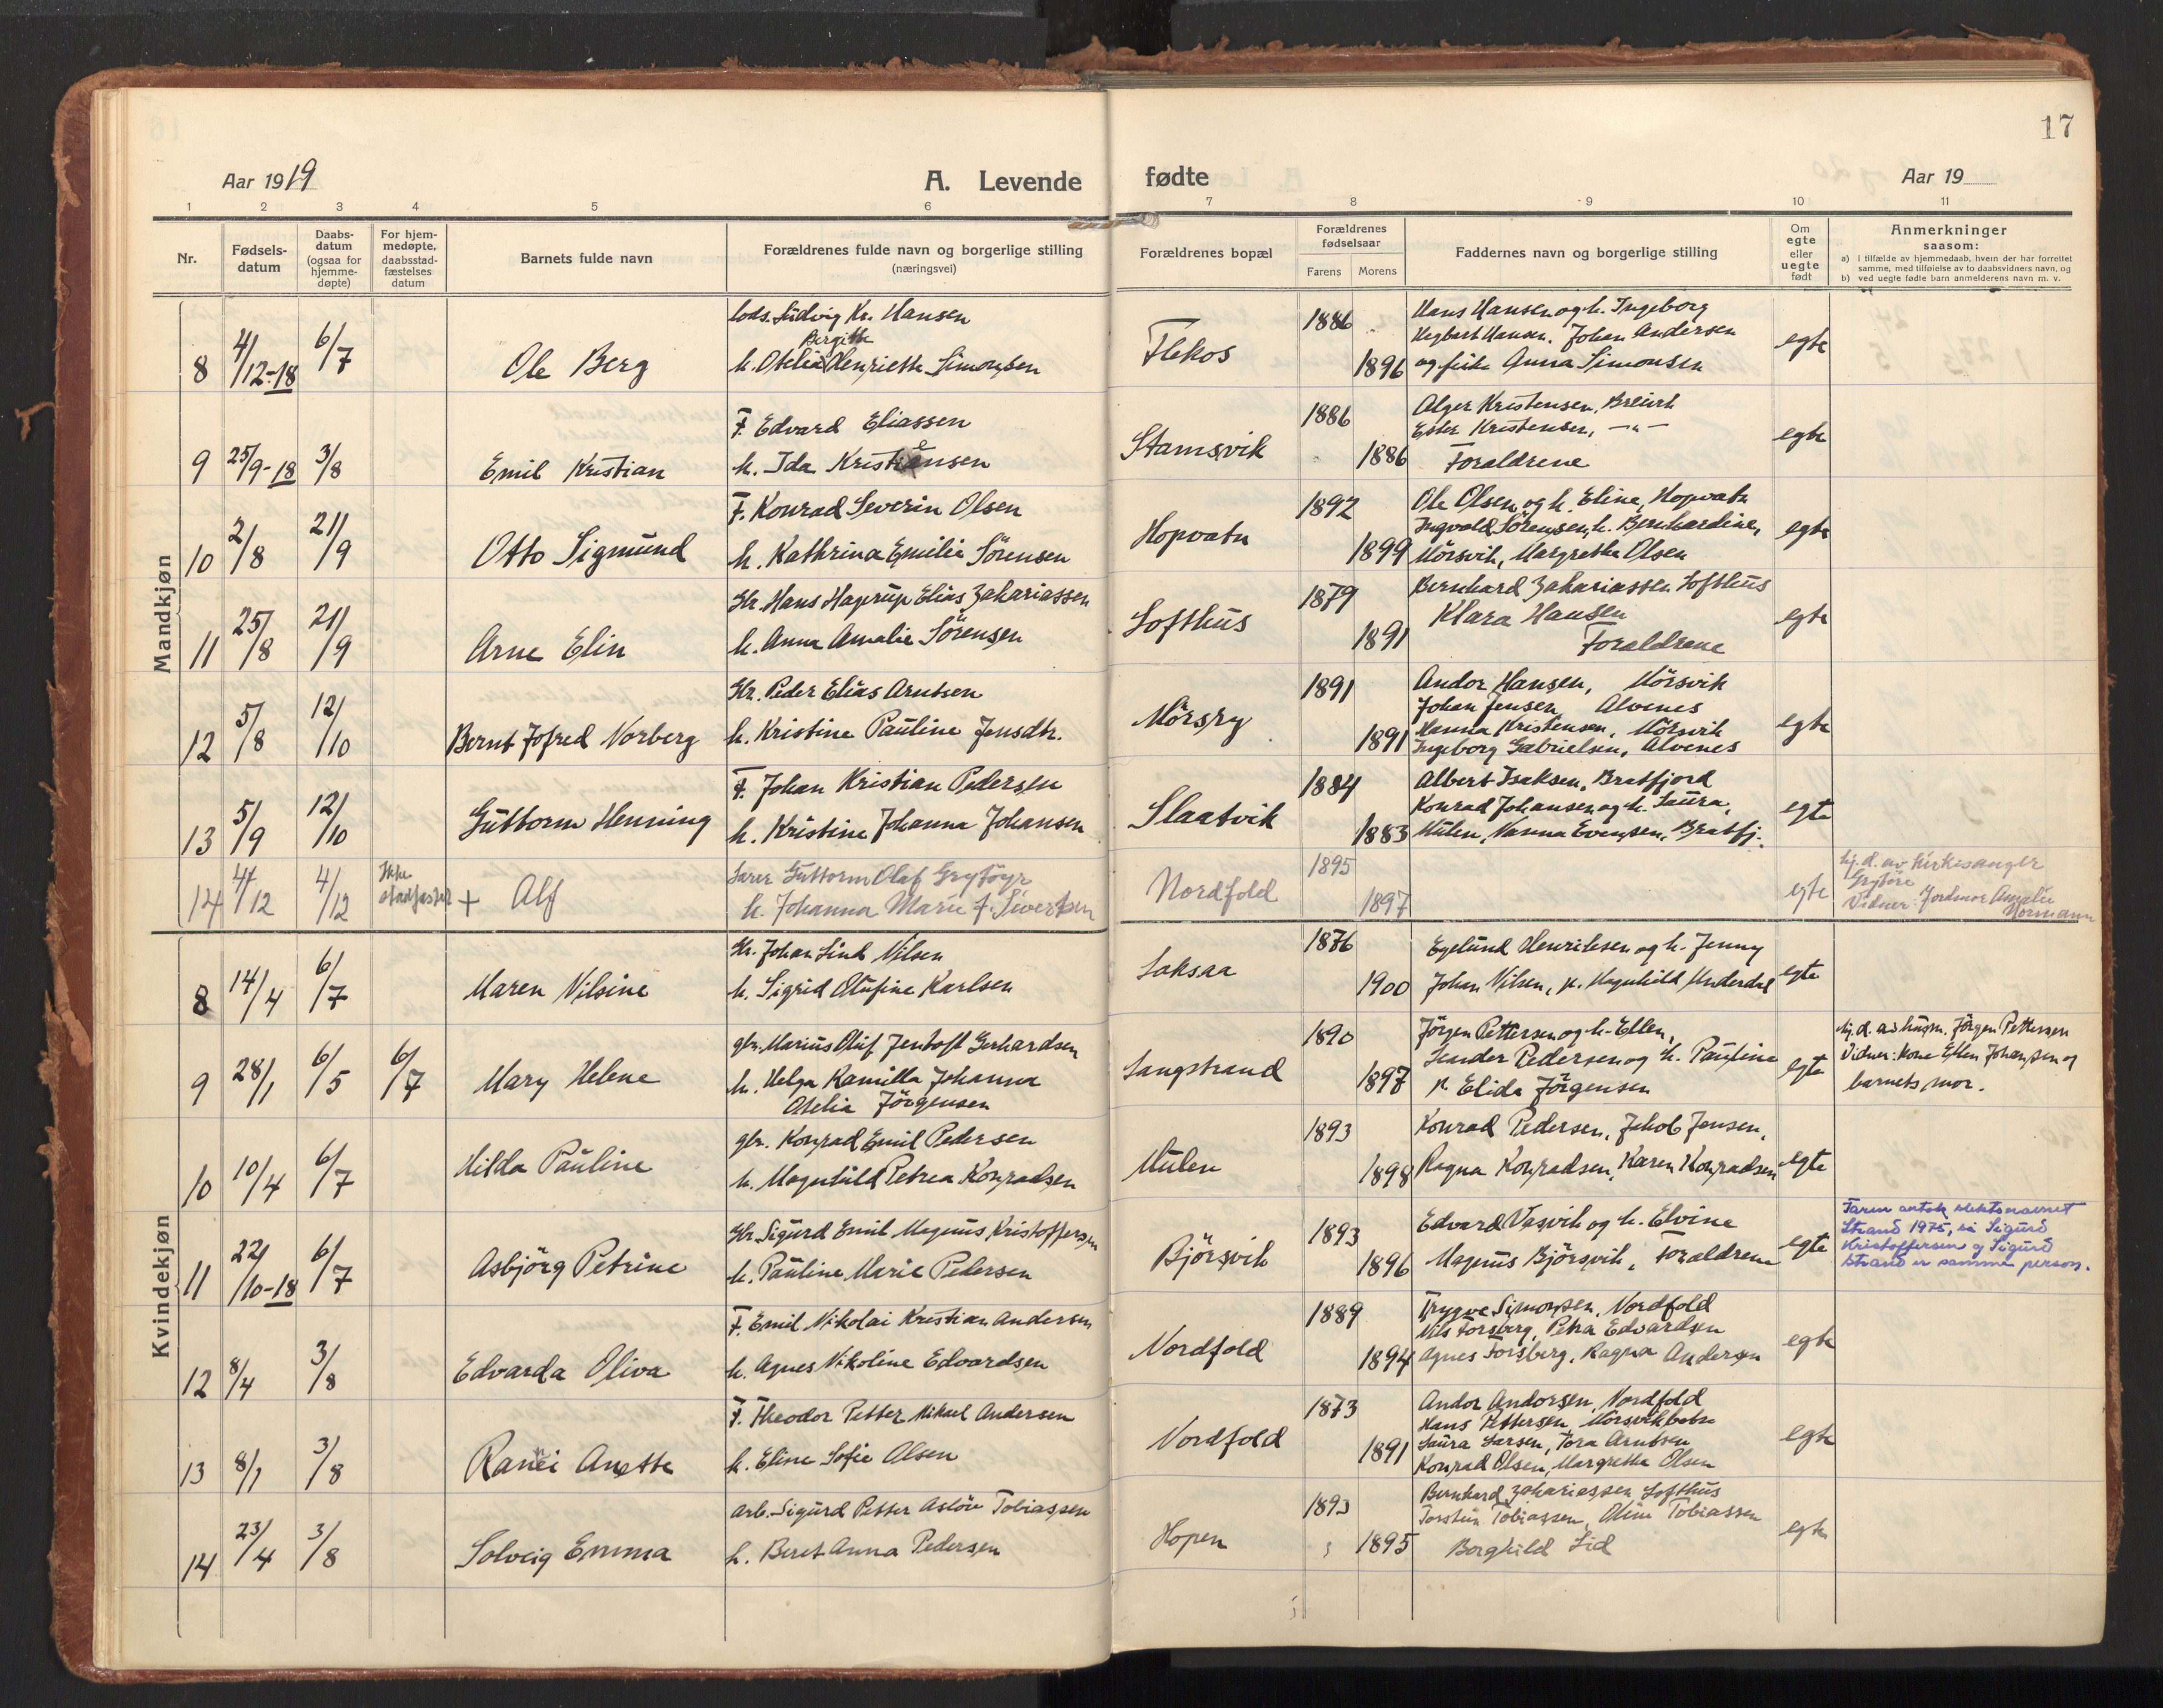 17
Aar 1919
A. Levende
fødte
Aar 19
1 2 3 4 5 6 7 8 9 10 11
Nr.
Fødsels-
datum
Daabs-
datum
(ogsaa for
hjemme-
døpte)
For hjem-
medøpte,
daabsstad-
fæstelses
datum
Barnets fulde navn
Forældrenes fulde navn og borgerlige stilling
(næringsvei)
Forældrenes bopæl
Forældrenes
fødselsaar
Farens Morens
Faddernes navn og borgerlige stilling
Om
egte
eller
uegte
født
Anmerkninger
saasom:
a) i tilfælde av hjemmedaab, hvem der har forrettet
samme, med tilføielse av to daabsvidners navn, og
b) ved uegte fødte barn anmelderens navn m. v.
Mandkjøn
8 4/12-18 6/7 Ole Berg
Lods. Ludvig Kr. Hansen
Birgitte
h. Otelia Henriette Simonsen
Flekos 1886 1896
Hans Hansen og h. Ingeborg
Hegbart Hansen. Johan Andersen
og Anna Simonsen
egte
9 25/9-18 3/8 Emil Kristian
F. Edvard Eliassen
h. Ida Kristensen
Stamsvik 1886 1886
Alger Kristensen, Breivik
Ester Kristensen, -"-
Forældrene
egte
10 2/8 21/9 Otto Sigmund
F. Konrad Severin Olsen
h. Kathrina Emilie Sörensen
Hopvatn 1892 1899
Ole Olsen og h. Eline, Hopvatn
Ingvald Sörensen, h. Bernhardine,
Mörsvik, Margrethe Olsen
egte
11 25/8 21/9 Arne Elin
Gbr. Hans Hagerup Elias Zakariassen
h. Anna Amalie Sörensen
Lofthus 1879 1891
Bernhard Zakariassen Lofthus
Klara Hansen
Forældrene
egte
12 5/8 12/10 Bernt Jofred Norberg
Gbr. Peder Elias Arntsen
h. Kristine Pauline Jensdtr.
Mörsry 1891 1891
Andor Hansen, Mörsvik
Johan Jensen Alvenes
Hanna Kristensen, Mörsvik
Ingeborg Gabrielsen, Alvenes
egte
13 5/9 12/10 Guttorm Henning
F. Johan Kristian Pedersen
h. Kristine Johanna Johansen
Slaatvik 1884 1883
Albert Isaksen, Bratfjord
Konrad Johansen og h. Laura,
Mulen, Vanna Evensen, Bratfj.
egte
14 4/12 4/12 Ikke
stadfæstet + Alf
Lærer Guttorm Olaf Grytöyr
h. Johanna Marie J. Sivertsen
Nordfold 1895 1897
egte
hj.d. av kirkesanger
Grytöre
Vidner: Jordmor Amalie
Normann
Kvindekjøn
8 14/4 6/7 Maren Nilsine
Gbr. Johan Lind Nilsen
h. Sigrid Olufine Karlsen
Laksaa 1876 1900
Egelund Henriksen og h. Jenny
Johan Nilsen, p. Magnhild Underdal
egte
9 28/1 6/5 6/7 Mary Helene
gbr. Marius Oluf Jentoft Gerhardsen
h. Helga Kamilla Johanna
Otelia Jörgensen
Langstrand 1890 1897
Jörgen Pettersen og h. Ellen,
Sander Pedersen og h. Pauline
p. Elida Jörgensen
egte
hj.d. av husm. Jörgen Pettersen
Vidner: Kone Ellen Johansen og
barnets mor.
10 10/4 6/7 Hilda Pauline
gbr. Konrad Emil Pedersen
h. Magnhild Petrea Konradsen
Mulen 1893 1898
Konrad Pedersen, Jakob Jensen,
Ragna Konradsen, Karen Konradsen
egte
11 22/10-18 6/7 Asbjörg Petrine
Gbr. Sigurd Emil Magnus Kristoffersen
h. Pauline Marie Pedersen
Björsvik 1893 1896
Edvard Vasvik og h. Elvine
Magnus Björsvik, Forældrene
egte
Faren antok slektsnavnet
Strand 1975, så Sigurd
Kristoffersen og Sigurd
Strand er samme person.
12 8/4 3/8 Edvarda Oliva
F. Emil Nikolai Kristian Andersen
h. Agnes Nikoline Edvardsen
Nordfold 1889 1894
Trygve Simonsen, Nordfold
Nils Forsberg, Petra Edvardsen
Agnes Forsberg, Ragna Andersen
egte
13 8/1 3/8 Rannei Anette
F. Theodor Petter Mikael Andersen
h. Eline Sofie Olsen
Nordfold 1873 1891
Andor Andorsen, Nordfold
Hans Pettersen, Mörsvikbotn
Laura Larsen, Tora Arntsen
Konrad Olsen, Margrethe Olsen
egte
14 23/4 3/8 Solveig Emma
arb. Sigurd Petter Aslöv Tobiassen
h. Beret Anna Pedersen
Hopen 1893 1895
Bernhard Zakariassen Lofthus
Torstein Tobiassen, Oline Tobiassen
Borghild Lid
egte